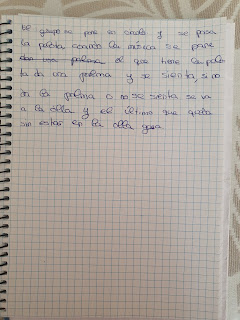 El grupo se pone en circulo y se pasa
la pelota cuando la musica se pare
el que tiene la pelo
ta da una palma y se sienta, si no
da la palma o no se sienta se va
a la olla y el ultimo que queda
sin estar en la olla gana